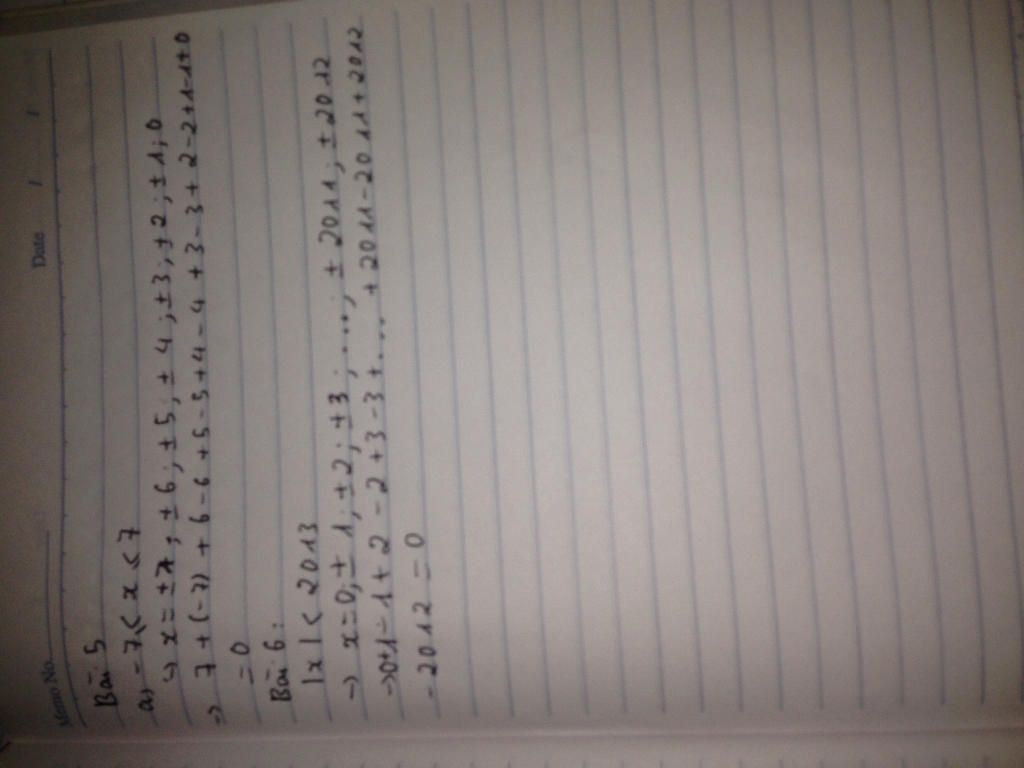 Memo No.
Date / /
Bài 5
a, -7 < x < 7
=> x = ±7; ±6; ±5; ±4; ±3; ±2; ±1; 0
=> 7 + (-7) + 6 - 6 + 5 - 5 + 4 - 4 + 3 - 3 + 2 - 2 + 1 - 1 + 0
= 0
Bài 6:
|x| < 2013
-> x = 0; ±1; ±2; ±3; ....; ±2011; ±2012
-> 0 + 1 - 1 + 2 - 2 + 3 - 3 + .... + 2011 - 2011 + 2012
- 2012 = 0